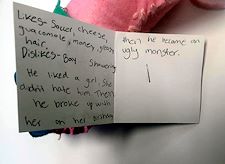 Likes- Soccer, cheese,
guacamole, money, glossy
hair,
Dislikes- Boy showering
He liked a girl. She
didn't hate him. Then
he broke up with
her on her birthday
then he became an
ugly monster.